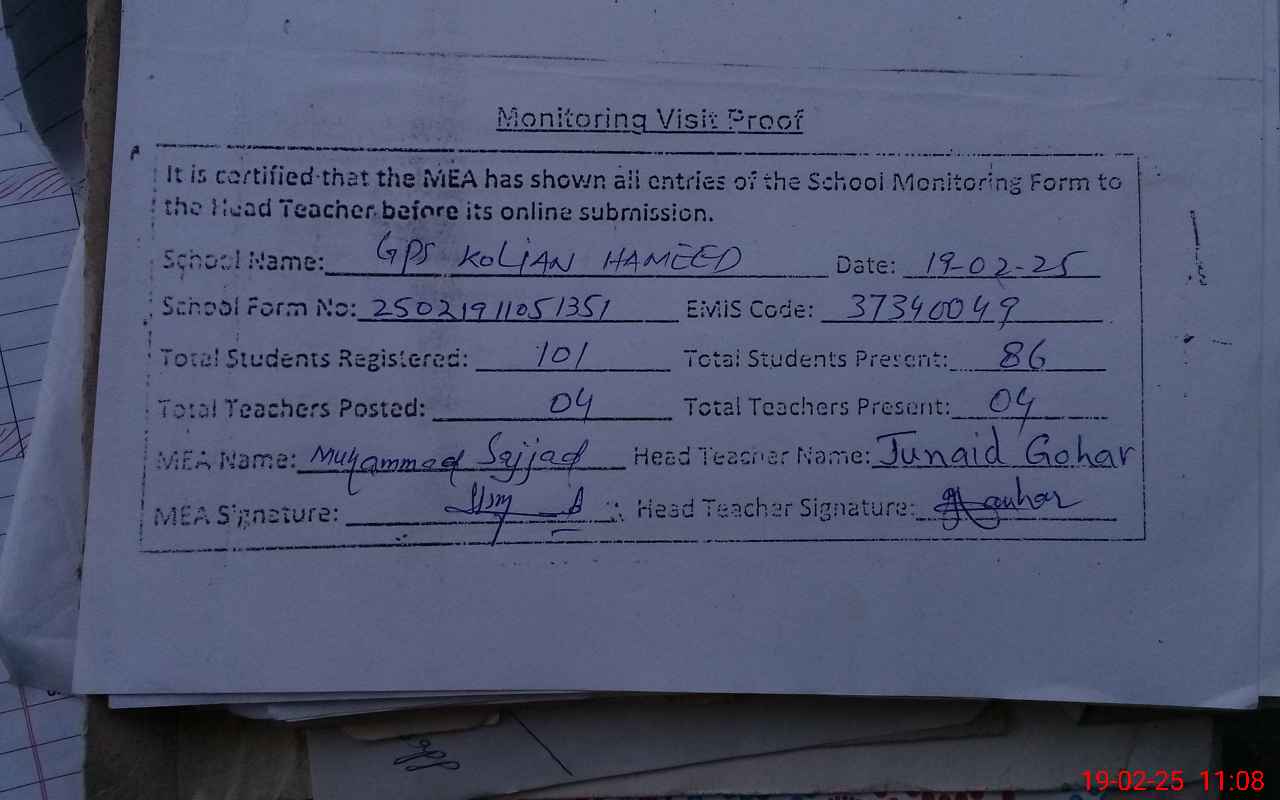 Monitoring Visit Proof
It is certified that the MEA has shown all entries of the School Monitoring Form to
the Head Teacher before its online submission.
School Name: GPS KOLIAN HAMEED Date: 19-02-25
School Form No: 25021911051351 EMIS Code: 37340049
Total Students Registered: 101 Total Students Present: 86
Total Teachers Posted: 04 Total Teachers Present: 04
MEA Name: Muhammad Sajjad Head Teacher Name: Junaid Gohar
MEA Signature: Head Teacher Signature:
19-02-25 11:08